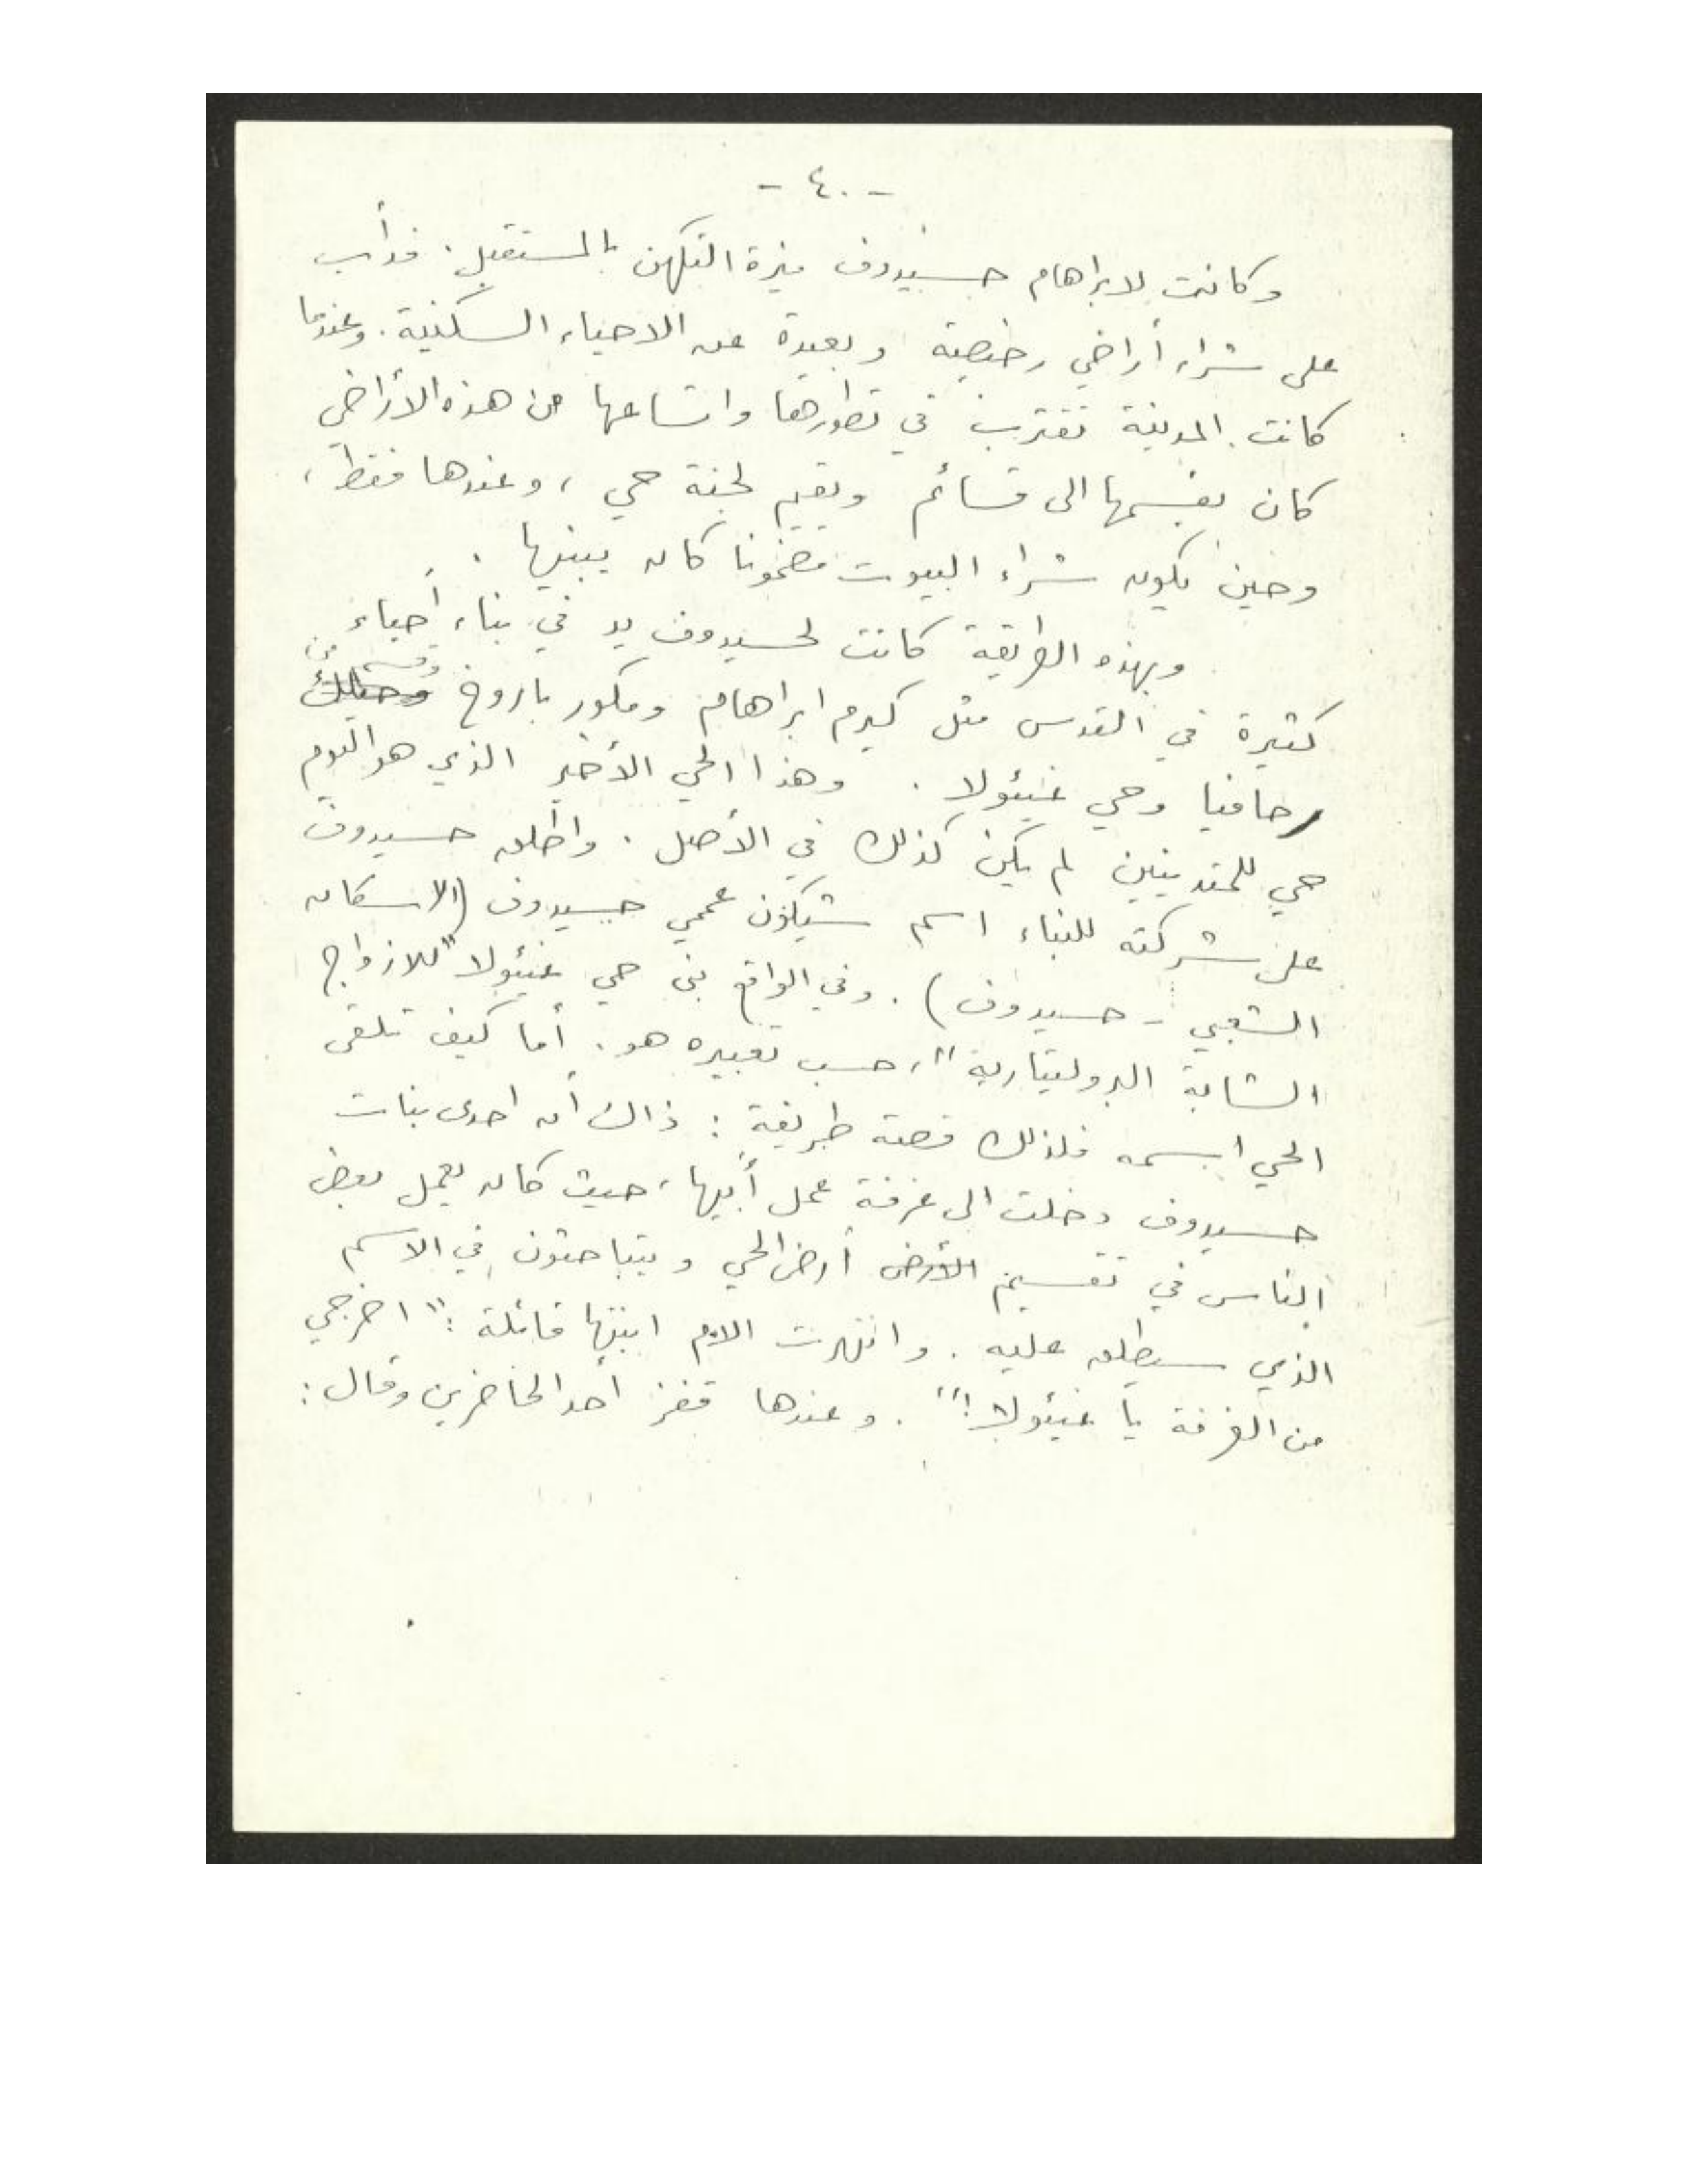 - ٤٠ -
وكانت لابراهام حسيدوف ميزة التكهن بالمستقبل. فدأب
على شراء أراضي رخيصة وبعيدة عن الاحياء السكنية. وعندما
كانت المدينة تقترب في تطورها واتساعها من هذه الأراضي
كان يقسمها الى قسائم ويقيم لجنة حي ، وعندها فقط ،
وحين يكون شراء البيوت مضمونا كان يبنيها .
وبهذه الطريقة كانت لحسيدوف يد في بناء أحياء
كثيرة في القدس مثل كيرم ابراهام ومكور باروخ وقسم من
رحافيا وحي غيئولا . وهذا الحي الأخير الذي هو اليوم
حي للمتدينين لم يكن كذلك في الأصل . واطلق حسيدوف
على شركته للبناء اسم شيكون عممي حسيدوف (الاسكان
الشعبي - حسيدوف) . وفي الواقع بنى حي غيئولا "للازواج
الشابة البروليتارية" ، حسب تعبيره هو . أما كيف تلقى
الحي اسمه فلذلك قصة طريفة : ذاك أن احدى بنات
حسيدوف دخلت الى غرفة عمل أبيها ، حيث كان يعمل بعض
الناس في تقسيم الأرض أرض الحي ويتباحثون في الاسم
الذي سيطلق عليه . وانتهرت الام ابنتها قائلة : "اخرجي
من الغرفة يا غيئولا !" . وعندها قفز أحد الحاضرين وقال :